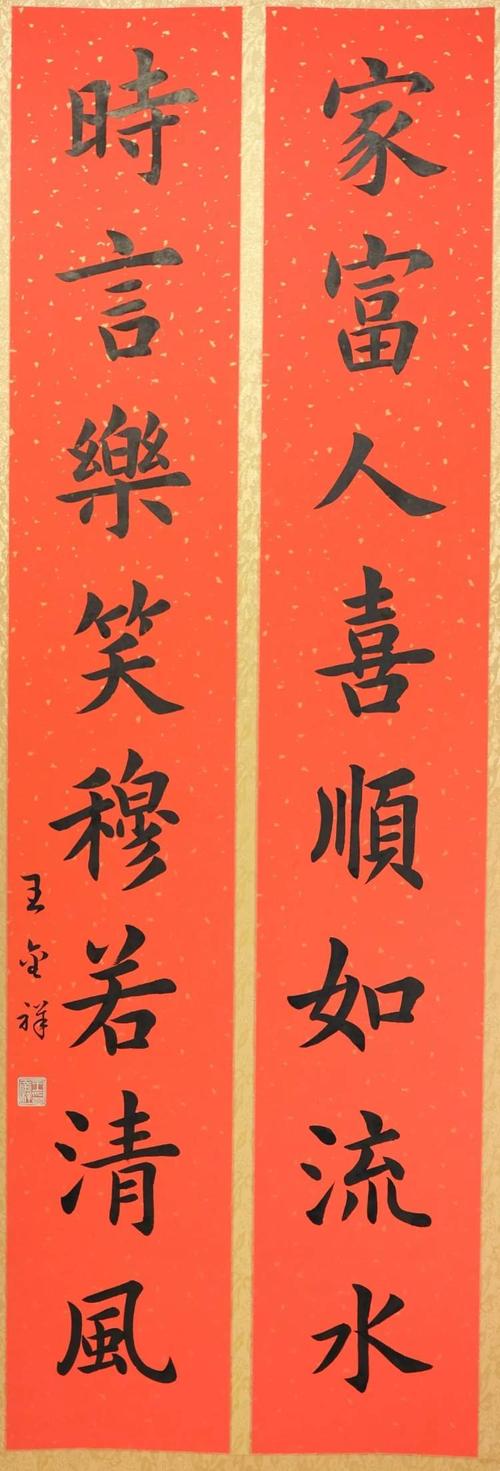 家富人喜順如流水
時言樂笑穆若清風
王金祥